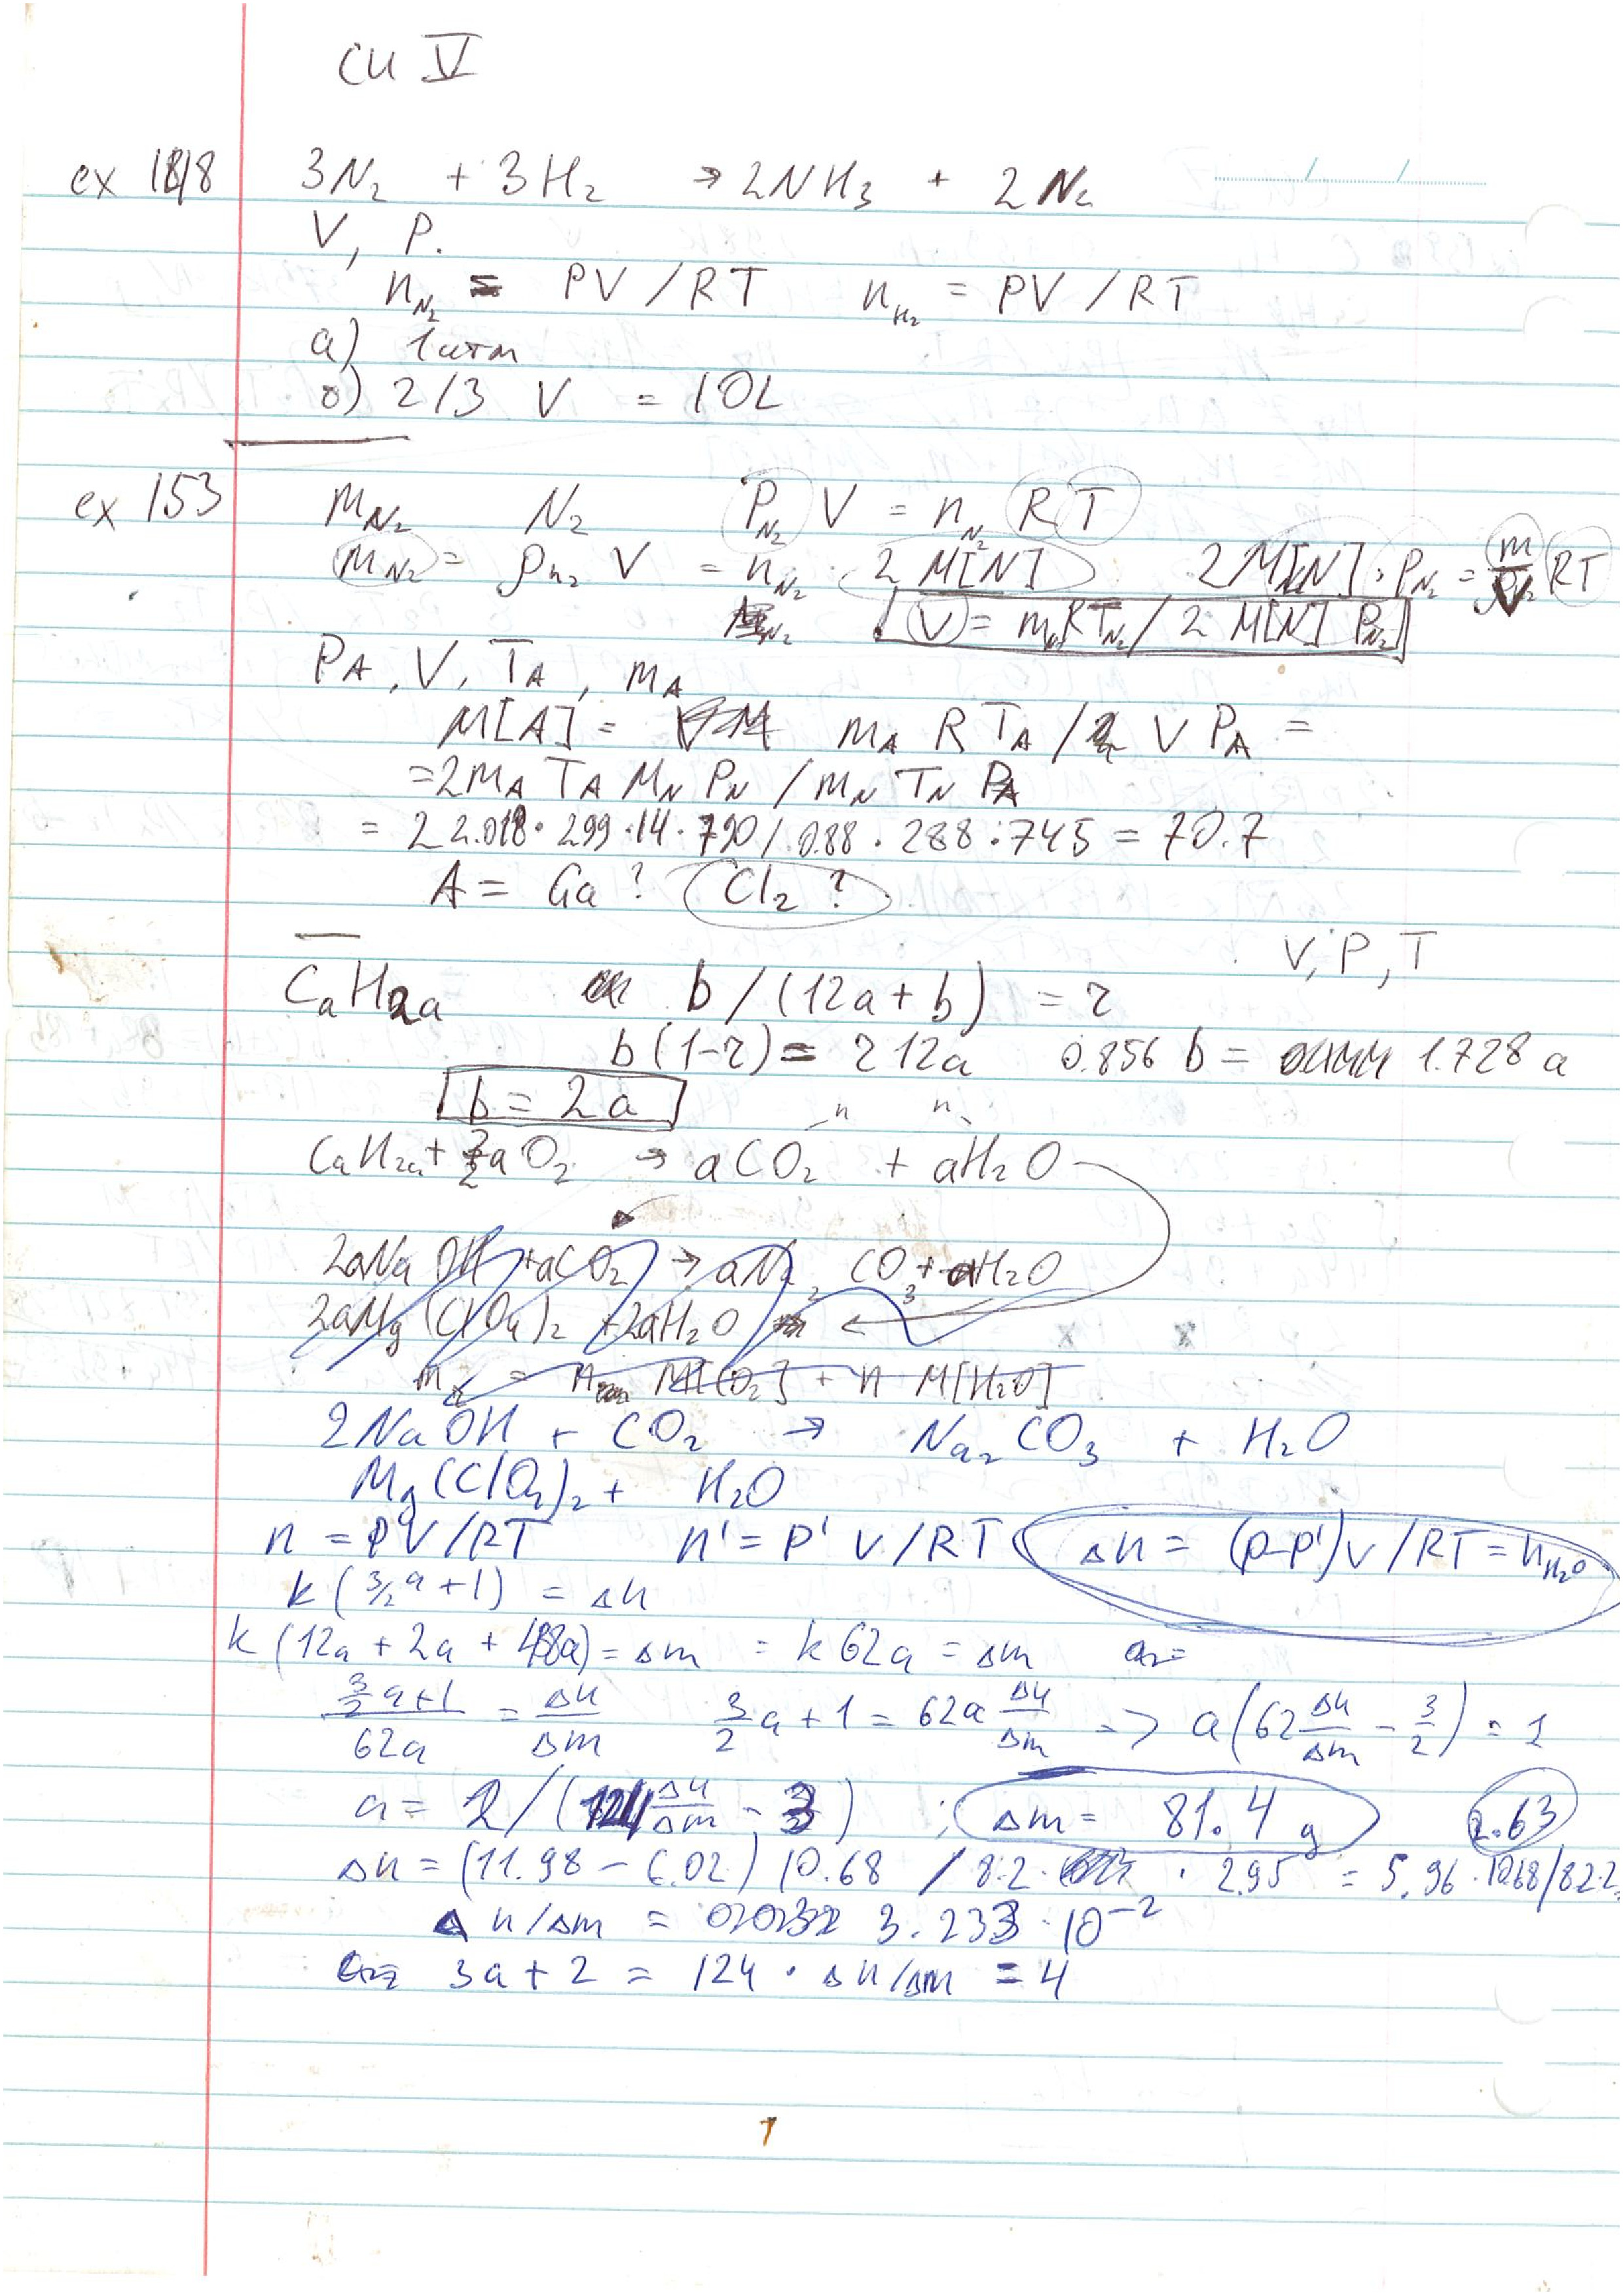 CH V
ex 18/8 3N₂ + 3H₂ → 2NH₃ + 2N₂
V, P.
n_N₂ = PV/RT n_H₂ = PV/RT
a) 1 atm
b) 2/3 V = 10L
ex 153 m_N₂ N₂ P_N₂ V = n_N₂ RT
m_N₂ = ρ_N₂ V = n_N₂ · 2 M[N] 2M[N] · P_N₂ = m/V RT
V = m_N RT_N₂ / 2 M[N] P_N₂
P_A, V, T_A, m_A
M[A] = m_A R T_A / V P_A =
= 2m_A T_A M_N P_N / m_N T_N P_A
= 2 2.018 · 299 · 14 · 790 / 0.88 · 288 · 745 = 70.7
A = Ga? Cl₂?
V, P, T
C_aH_2a b/(12a+b) = r
b(1-r) = r12a 0.856 b = 1.728 a
b = 2a
n n
C_aH_2a + 3/2 aO₂ → aCO₂ + aH₂O
2aNaOH + aCO₂ → aNa₂CO₃ + aH₂O
2aMg(ClO₄)₂ + 2aH₂O
m = n M[CO₂] + n M[H₂O]
2NaOH + CO₂ → Na₂CO₃ + H₂O
Mg(ClO₄)₂ + H₂O
n = PV/RT n' = P'V/RT Δn = (P-P')V/RT = n_H₂O
k(3/2 a+1) = Δn
k(12a + 2a + 48a) = Δm = k62a = Δm a=
(3/2 a+1)/62a = Δn/Δm 3/2 a + 1 = 62a Δn/Δm => a(62 Δn/Δm - 3/2) = 1
a = 2/(124 Δn/Δm - 3) ; Δm = 81.4 g 2.63
Δn = (11.98 - 6.02) 10.68 / 8.2 · 2.95 = 5.96 · 10.68/8.2.2
Δn/Δm = 3.233 · 10⁻²
3a + 2 = 124 · Δn/Δm = 4
1